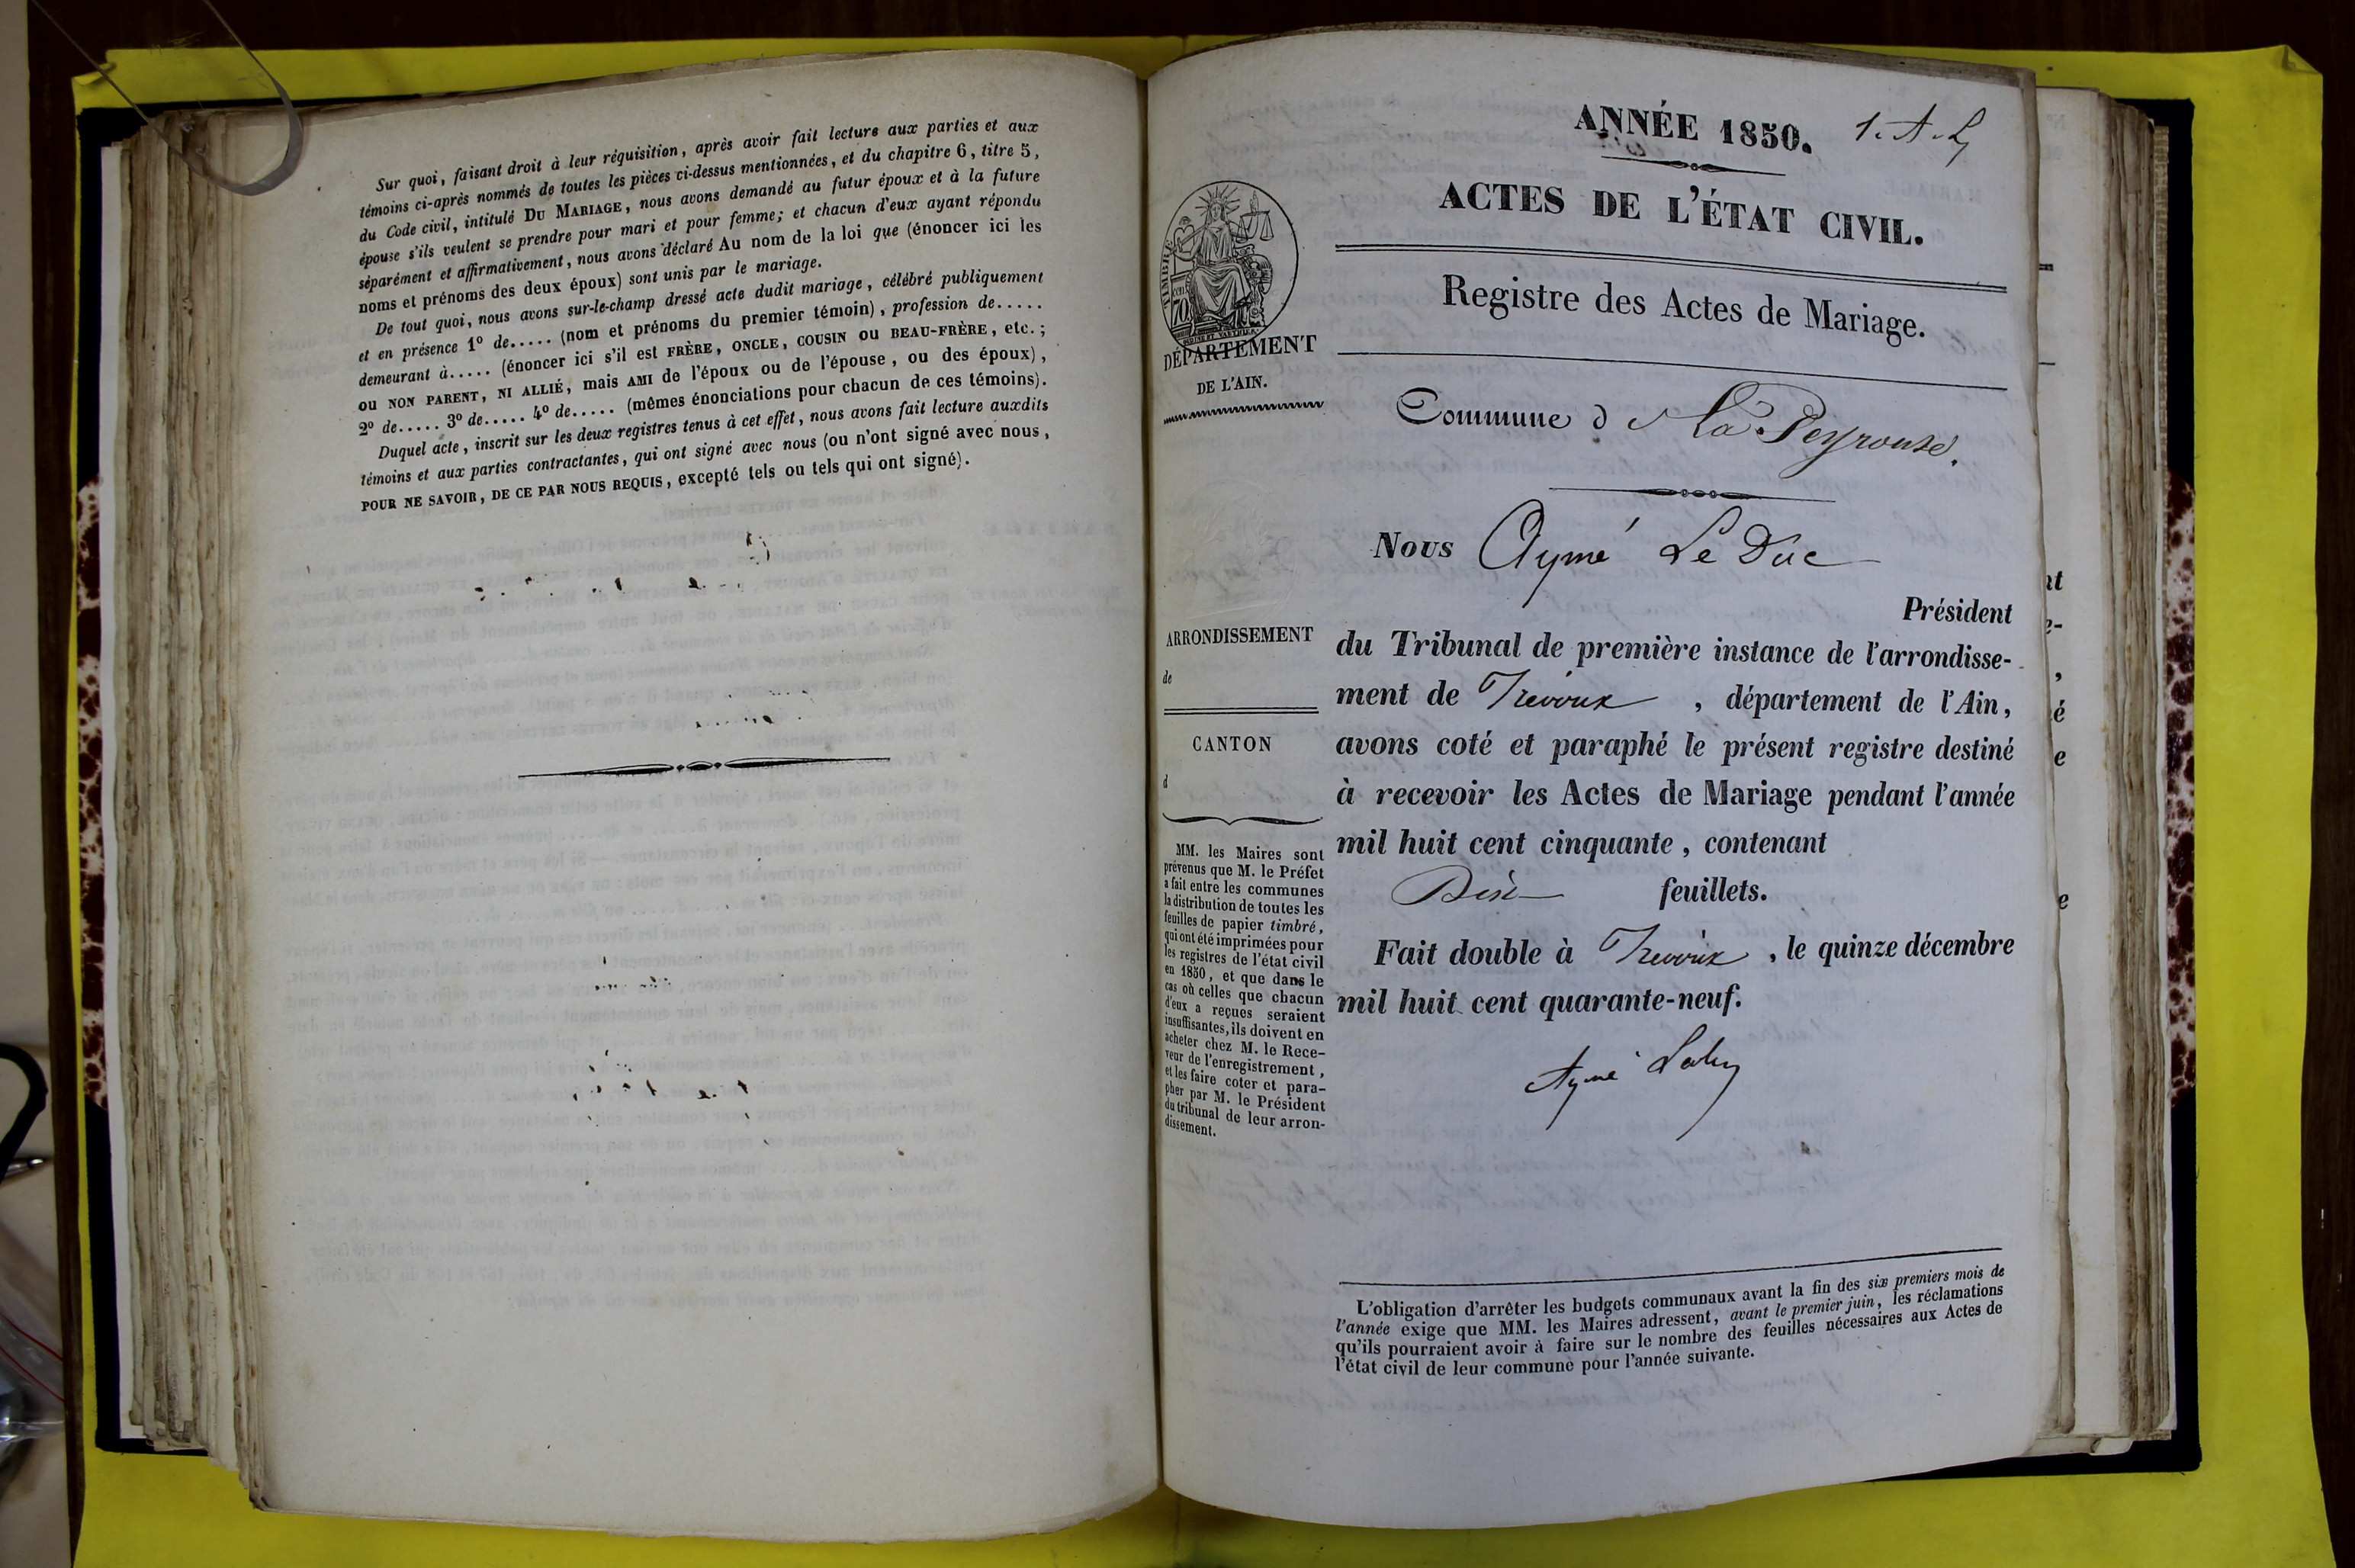 Sur quoi, faisant droit à leur réquisition, après avoir fait lecture aux parties et aux
témoins ci-après nommés de toutes les pièces ci-dessus mentionnées, et du chapitre 6, titre 5,
du Code civil, intitulé DU MARIAGE, nous avons demandé au futur époux et à la future
épouse s'ils veulent se prendre pour mari et pour femme; et chacun d'eux ayant répondu
séparément et affirmativement, nous avons déclaré Au nom de la loi que (énoncer ici les
noms et prénoms des deux époux) sont unis par le mariage.
De tout quoi, nous avons sur-le-champ dressé acte dudit mariage, célébré publiquement
et en présence 1º de..... (nom et prénoms du premier témoin), profession de.....
demeurant à..... (énoncer ici s'il est FRÈRE, ONCLE, COUSIN OU BEAU-FRÈRE, etc.;
OU NON PARENT, NI ALLIÉ, mais AMI de l'époux ou de l'épouse, ou des époux),
2º de..... 3º de..... 4º de..... (mêmes énonciations pour chacun de ces témoins).
Duquel acte, inscrit sur les deux registres tenus à cet effet, nous avons fait lecture auxdits
témoins et aux parties contractantes, qui ont signé avec nous (ou n'ont signé avec nous,
POUR NE SAVOIR, DE CE PAR NOUS REQUIS, excepté tels ou tels qui ont signé).
ANNÉE 1850. 1. A. L
ACTES DE L'ÉTAT CIVIL.
Registre des Actes de Mariage.
DÉPARTEMENT
DE L'AIN.
Commune d La Peyrouse.
Nous Aymé Le Duc
Président
ARRONDISSEMENT
de
du Tribunal de première instance de l'arrondisse-
ment de Trévoux , département de l'Ain,
CANTON
d
avons coté et paraphé le présent registre destiné
à recevoir les Actes de Mariage pendant l'année
mil huit cent cinquante, contenant
feuillets.
Fait double à Trévoux , le quinze décembre
mil huit cent quarante-neuf.
MM. les Maires sont
prévenus que M. le Préfet
a fait entre les communes
la distribution de toutes les
feuilles de papier timbré,
qui ont été imprimées pour
les registres de l'état civil
en 1850, et que dans le
cas où celles que chacun
d'eux a reçues seraient
insuffisantes, ils doivent en
acheter chez M. le Rece-
veur de l'enregistrement,
et les faire coter et para-
pher par M. le Président
du tribunal de leur arron-
dissement.
Aymé
L'obligation d'arrêter les budgets communaux avant la fin des six premiers mois de
l'année exige que MM. les Maires adressent, avant le premier juin, les réclamations
qu'ils pourraient avoir à faire sur le nombre des feuilles nécessaires aux Actes de
l'état civil de leur commune pour l'année suivante.